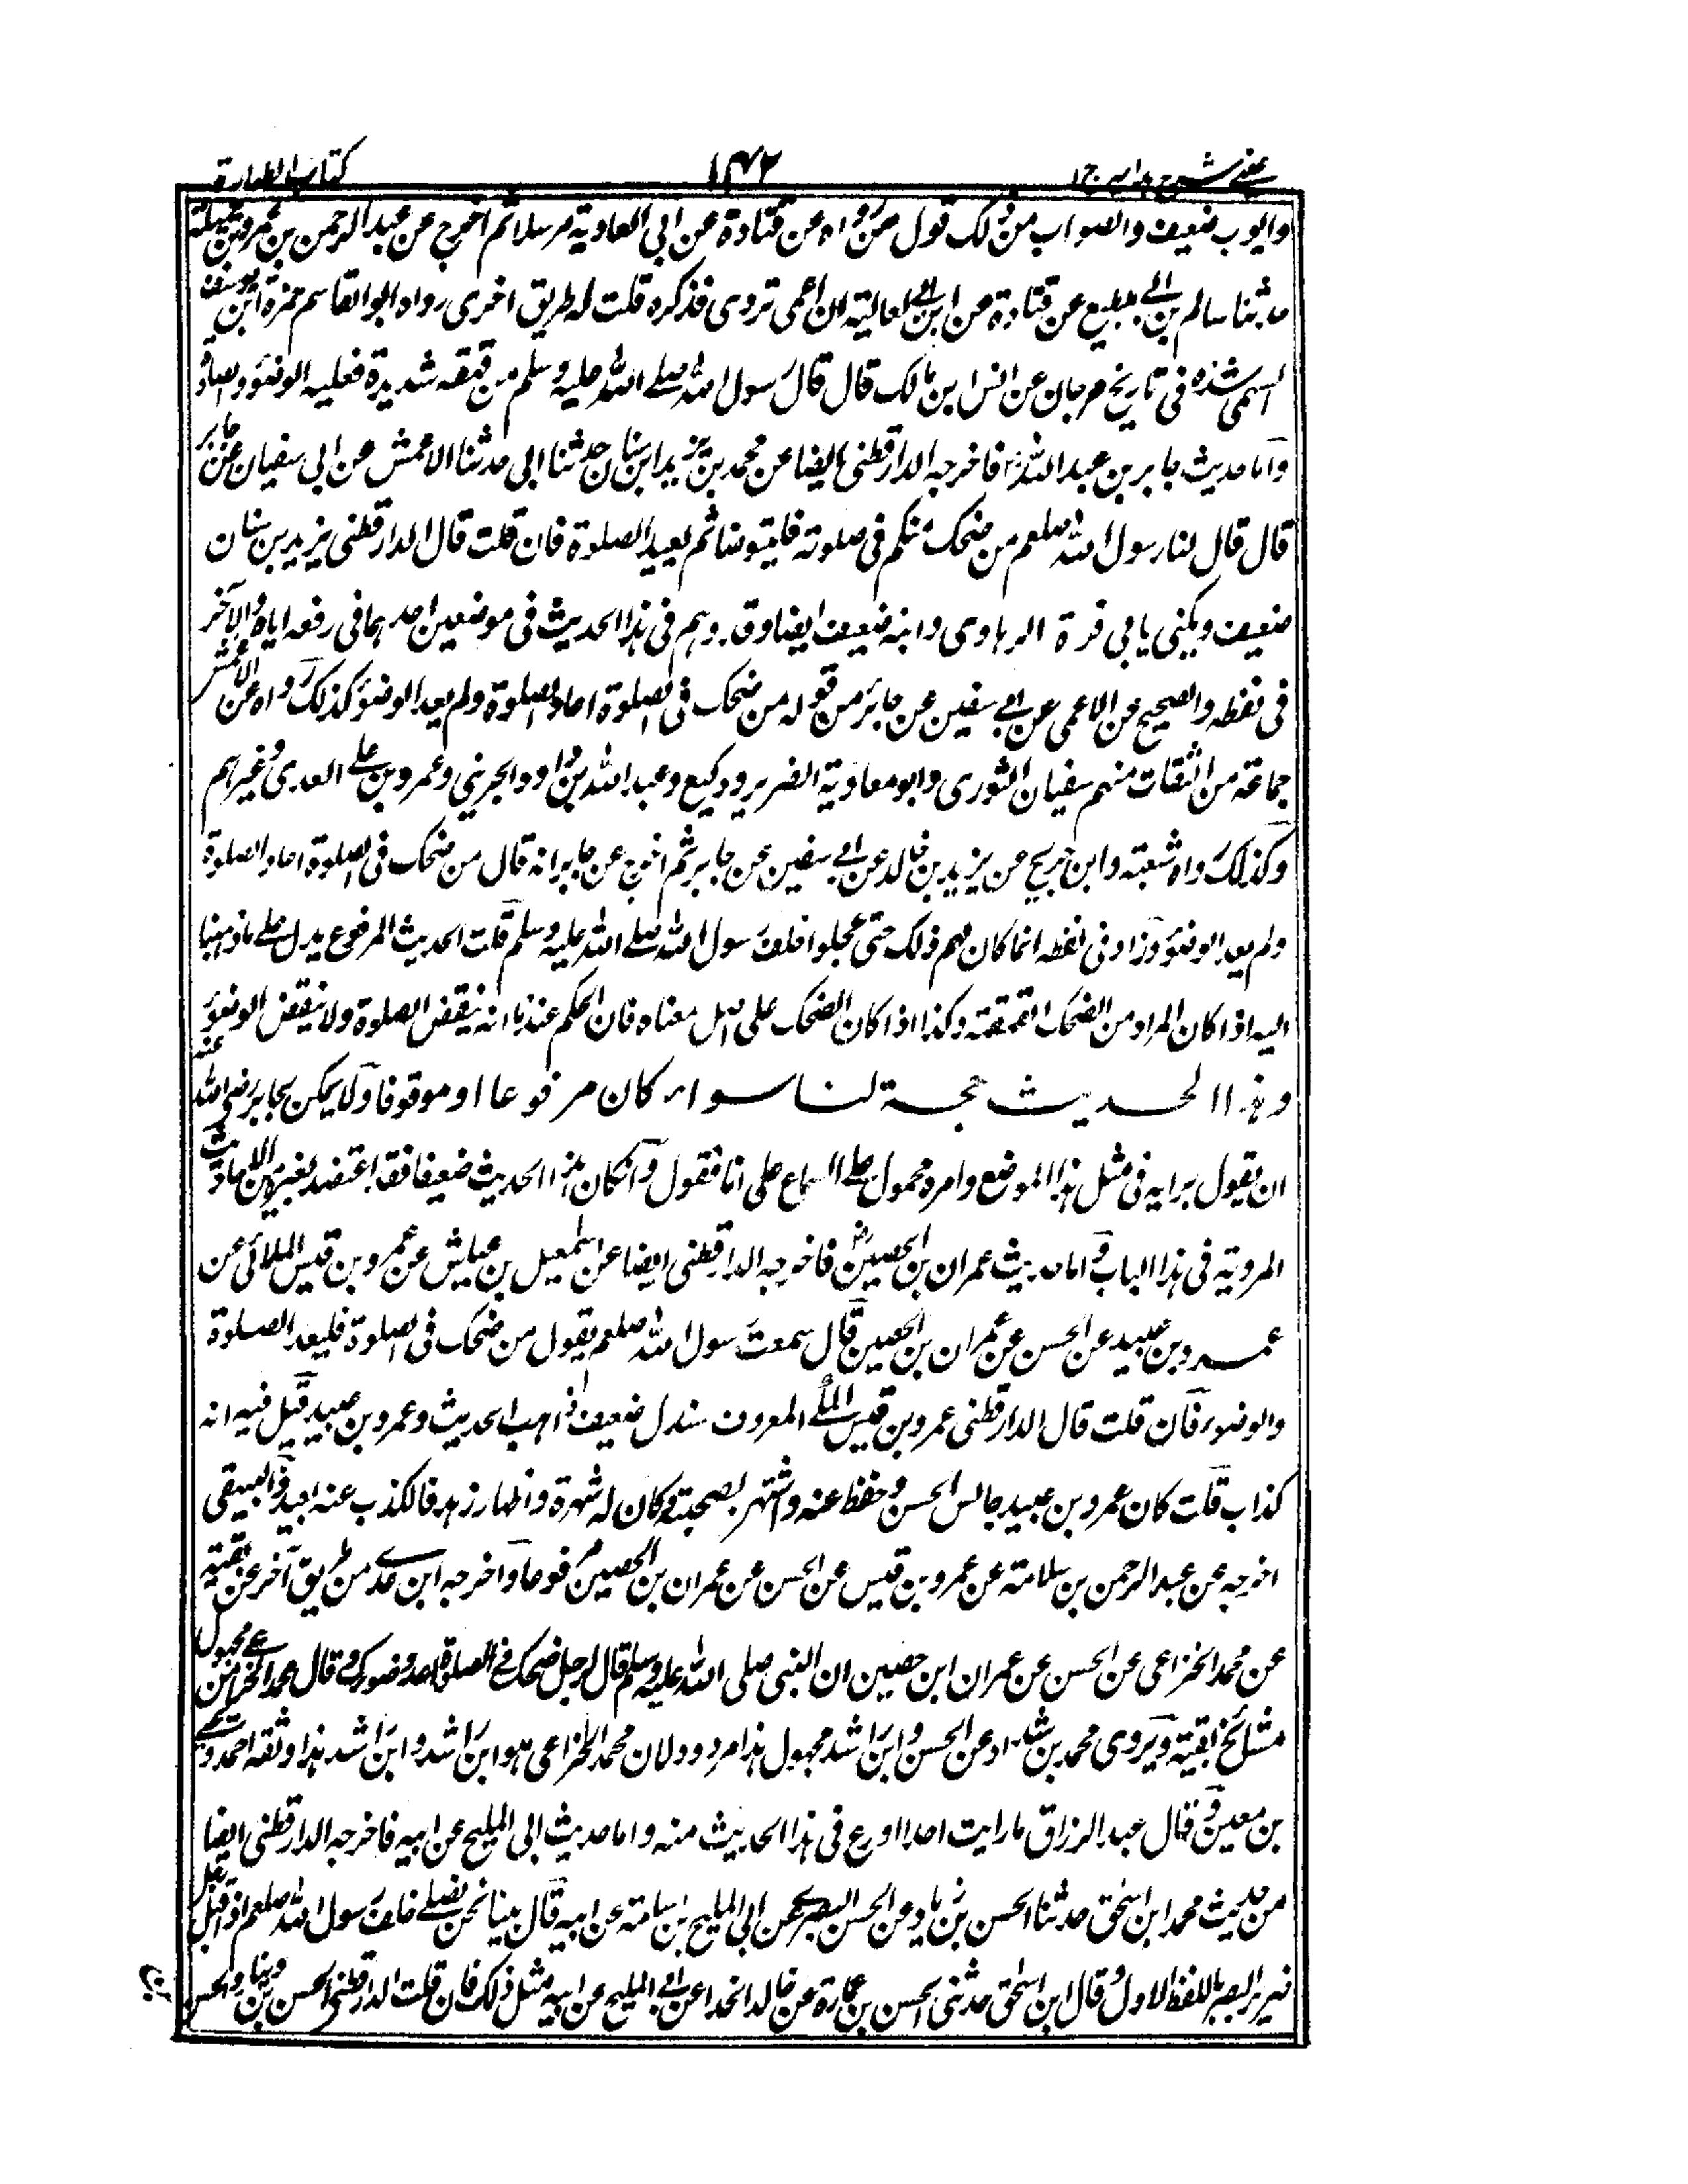 عینی شرح ہدایہ ج۱ ۱۴۲ کتاب الطہارۃ
وایوب ضعیف والصواب من ذلک قول من رواہ عن قتادة عن ابی العاویة مرسلا ثم اخرج عن عبدالرحمن بن عمرو بن جبلة
حدثنا سالم بن ابی مطیع عن قتادة عن ابن ابی العالیة ان اعمی تردی فذکرہ قلت لہ طریق اخری رواہ ابوالقاسم حمزة ابن یوسف
السہمی فی تاریخ جرجان عن انس ابن مالک قال قال رسول اللہ صلے اللہ علیہ وسلم من قہقہہ شدیدة فعلیہ الوضوء والصلوة
واما حدیث جابر بن عبداللہ فاخرجہ الدارقطنی ایضا عن محمد بن یزید ابن سنان حدثنا ابی حدثنا الاعمش عن ابی سفیان عن جابر
قال قال لنا رسول اللہ صلعم من ضحک منکم فی صلوتہ فلیتوضا ثم یعید الصلوة فان قلت قال الدارقطنی یزید بن سنان
ضعیف ویکنی بابی فرة الرہاوی وابنہ ضعیف ایضا وقد وہم فی ہذا الحدیث فی موضعین احدہما فی رفعہ ایاہ والآخر
فی لفظہ والصحیح عن الاعمی عن ابے سفین عن جابر من قولہ من ضحک فی الصلوة اعاد الصلوة ولم یعد الوضوء کذلک رواہ عن الاعمش
جماعة من الثقات منہم سفیان الثوری وابومعاویة الضریر ووکیع وعبداللہ بن داود الجریبی وعمرو بن علے العدی وغیرہم
وکذلک رواہ شعبة وابن جریج عن یزید بن خالد عن ابے سفین عن جابر ثم اخرج عن جابر انہ قال من ضحک فی الصلوة اعاد الصلوة
ولم یعد الوضوء وزاد فی لفظہ انما کان لہم ذلک حتی عجلوا خلف رسول اللہ صلے اللہ علیہ وسلم قلت الحدیث المرفوع یدل علے ما ذہبنا
الیہ اذا کان المراد من الضحک القہقہة وکذا اذا کان الضحک علی اصل معناہ فان الحکم عندنا انہ ینقض الصلوة ولا ینقض الوضوء
وہذا الحدیث حجة لنا سواء کان مرفوعا او موقوفا ولا یمکن لجابر رضی اللہ عنہ
ان یقول برایہ فی مثل ہذا الموضع وامرہ محمول علے السماع علی انا نقول وان کان ہذا الحدیث ضعیفا فقد اعتضد بغیرہ من الاحادیث
المرویة فی ہذا الباب واما حدیث عمران بن الحصین فاخرجہ الدارقطنی ایضا عن اسمعیل بن عیاش عن عمرو بن قیس الملائی عن
عمرو بن عبید عن الحسن عن عمران بن الحصین قال سمعت رسول اللہ صلعم یقول من ضحک فی الصلوة فلیعد الصلوة
والوضوء فان قلت قال الدارقطنی عمرو بن قیس المعروف سندل ضعیف ذاہب الحدیث وعمرو بن عبید قیل فیہ انہ
کذاب قلت کان عمرو بن عبید جالس الحسن وحفظ عنہ واشتہر بصحبتہ وکان لہ شہرة واظہار زہد فالکذب عنہ بعید والبیہقی
اخرجہ عن عبدالرحمن بن سلامتہ عن عمرو بن قیس عن الحسن عن عمران بن الحصین مرفوعا واخرجہ ابن عدے من طریق آخر عن بقیة
عن محمد الخزاعی عن الحسن عن عمران ابن حصین ان النبی صلی اللہ علیہ وسلم قال لرجل ضحک فے الصلوة اعد وضوءک وقال محمد الخزاعے مجہول من
مشائخ بقیة ویروی محمد بن راشد عن الحسن وابن راشد مجہول ہذا مردود لان محمد الخزاعی ہو ابن راشد وابن راشد ہذا وثقہ احمد ویحیے
بن معین وقال عبدالرزاق ما رایت احدا اورع فی ہذا الحدیث منہ واما حدیث ابی الملیح عن ابیہ فاخرجہ الدارقطنی ایضا
من حدیث محمد ابن اسحق حدثنا الحسن بن عن الحسن البصری عن ابی الملیح بن اسامتہ عن ابیہ قال بینا نحن نصلے خلف رسول اللہ صلعم اذ اقبل رجل
ضریر البصر باللفظ الاول وقال ابن اسحق حدثنی الحسن بن عمارة عن خالد الحذاء عن ابے الملیح عن ابیہ مثل ذلک فان قلت الدارقطنی الحسن بن دینار والحسن
بن